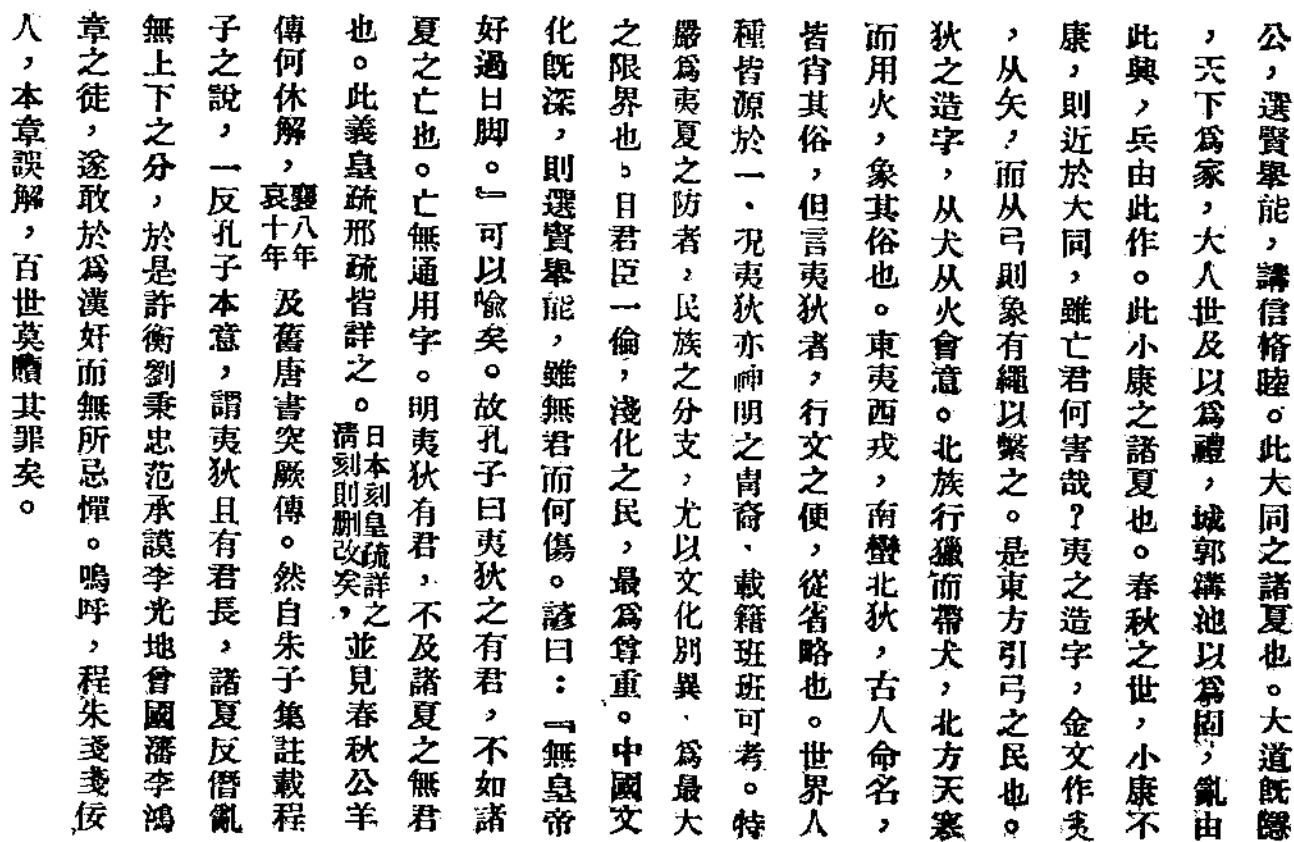 公，選賢舉能，講信脩睦。此大同之諸夏也。大道既隱
，天下爲家，大人世及以爲禮，城郭溝池以爲固，亂由
此興，兵由此作。此小康之諸夏也。春秋之世，小康不
康，則近於大同，雖亡君何害哉？夷之造字，金文作夷
，从矢，而从弓則象有繩以繫之。是東方引弓之民也。
狄之造字，从犬从火會意。北族行獵而帶犬，北方天寒
而用火，象其俗也。東夷西戎，南蠻北狄，古人命名，
皆肖其俗，但言夷狄者，行文之便，從省略也。世界人
種皆源於一、況夷狄亦神明之冑裔、載籍班班可考。特
嚴爲夷夏之防者，民族之分支，尤以文化別異、爲最大
之限界也。目君臣一倫，淺化之民，最爲尊重。中國文
化既深，則選賢舉能，雖無君而何傷。諺曰：『無皇帝
好過日脚。』可以喻矣。故孔子曰夷狄之有君，不如諸
夏之亡也。亡無通用字。明夷狄有君，不及諸夏之無君
也。此義皇疏邢疏皆詳之。日本刻皇疏詳之清刻則删改矣，並見春秋公羊
傳何休解，襄八年哀十年及舊唐書突厥傳。然自朱子集註載程
子之說，一反孔子本意，謂夷狄且有君長，諸夏反僭亂
無上下之分，於是許衡劉秉忠范承謨李光地曾國藩李鴻
章之徒，遂敢於爲漢奸而無所忌憚。嗚呼，程朱戔戔佞
人，本章誤解，百世莫贖其罪矣。